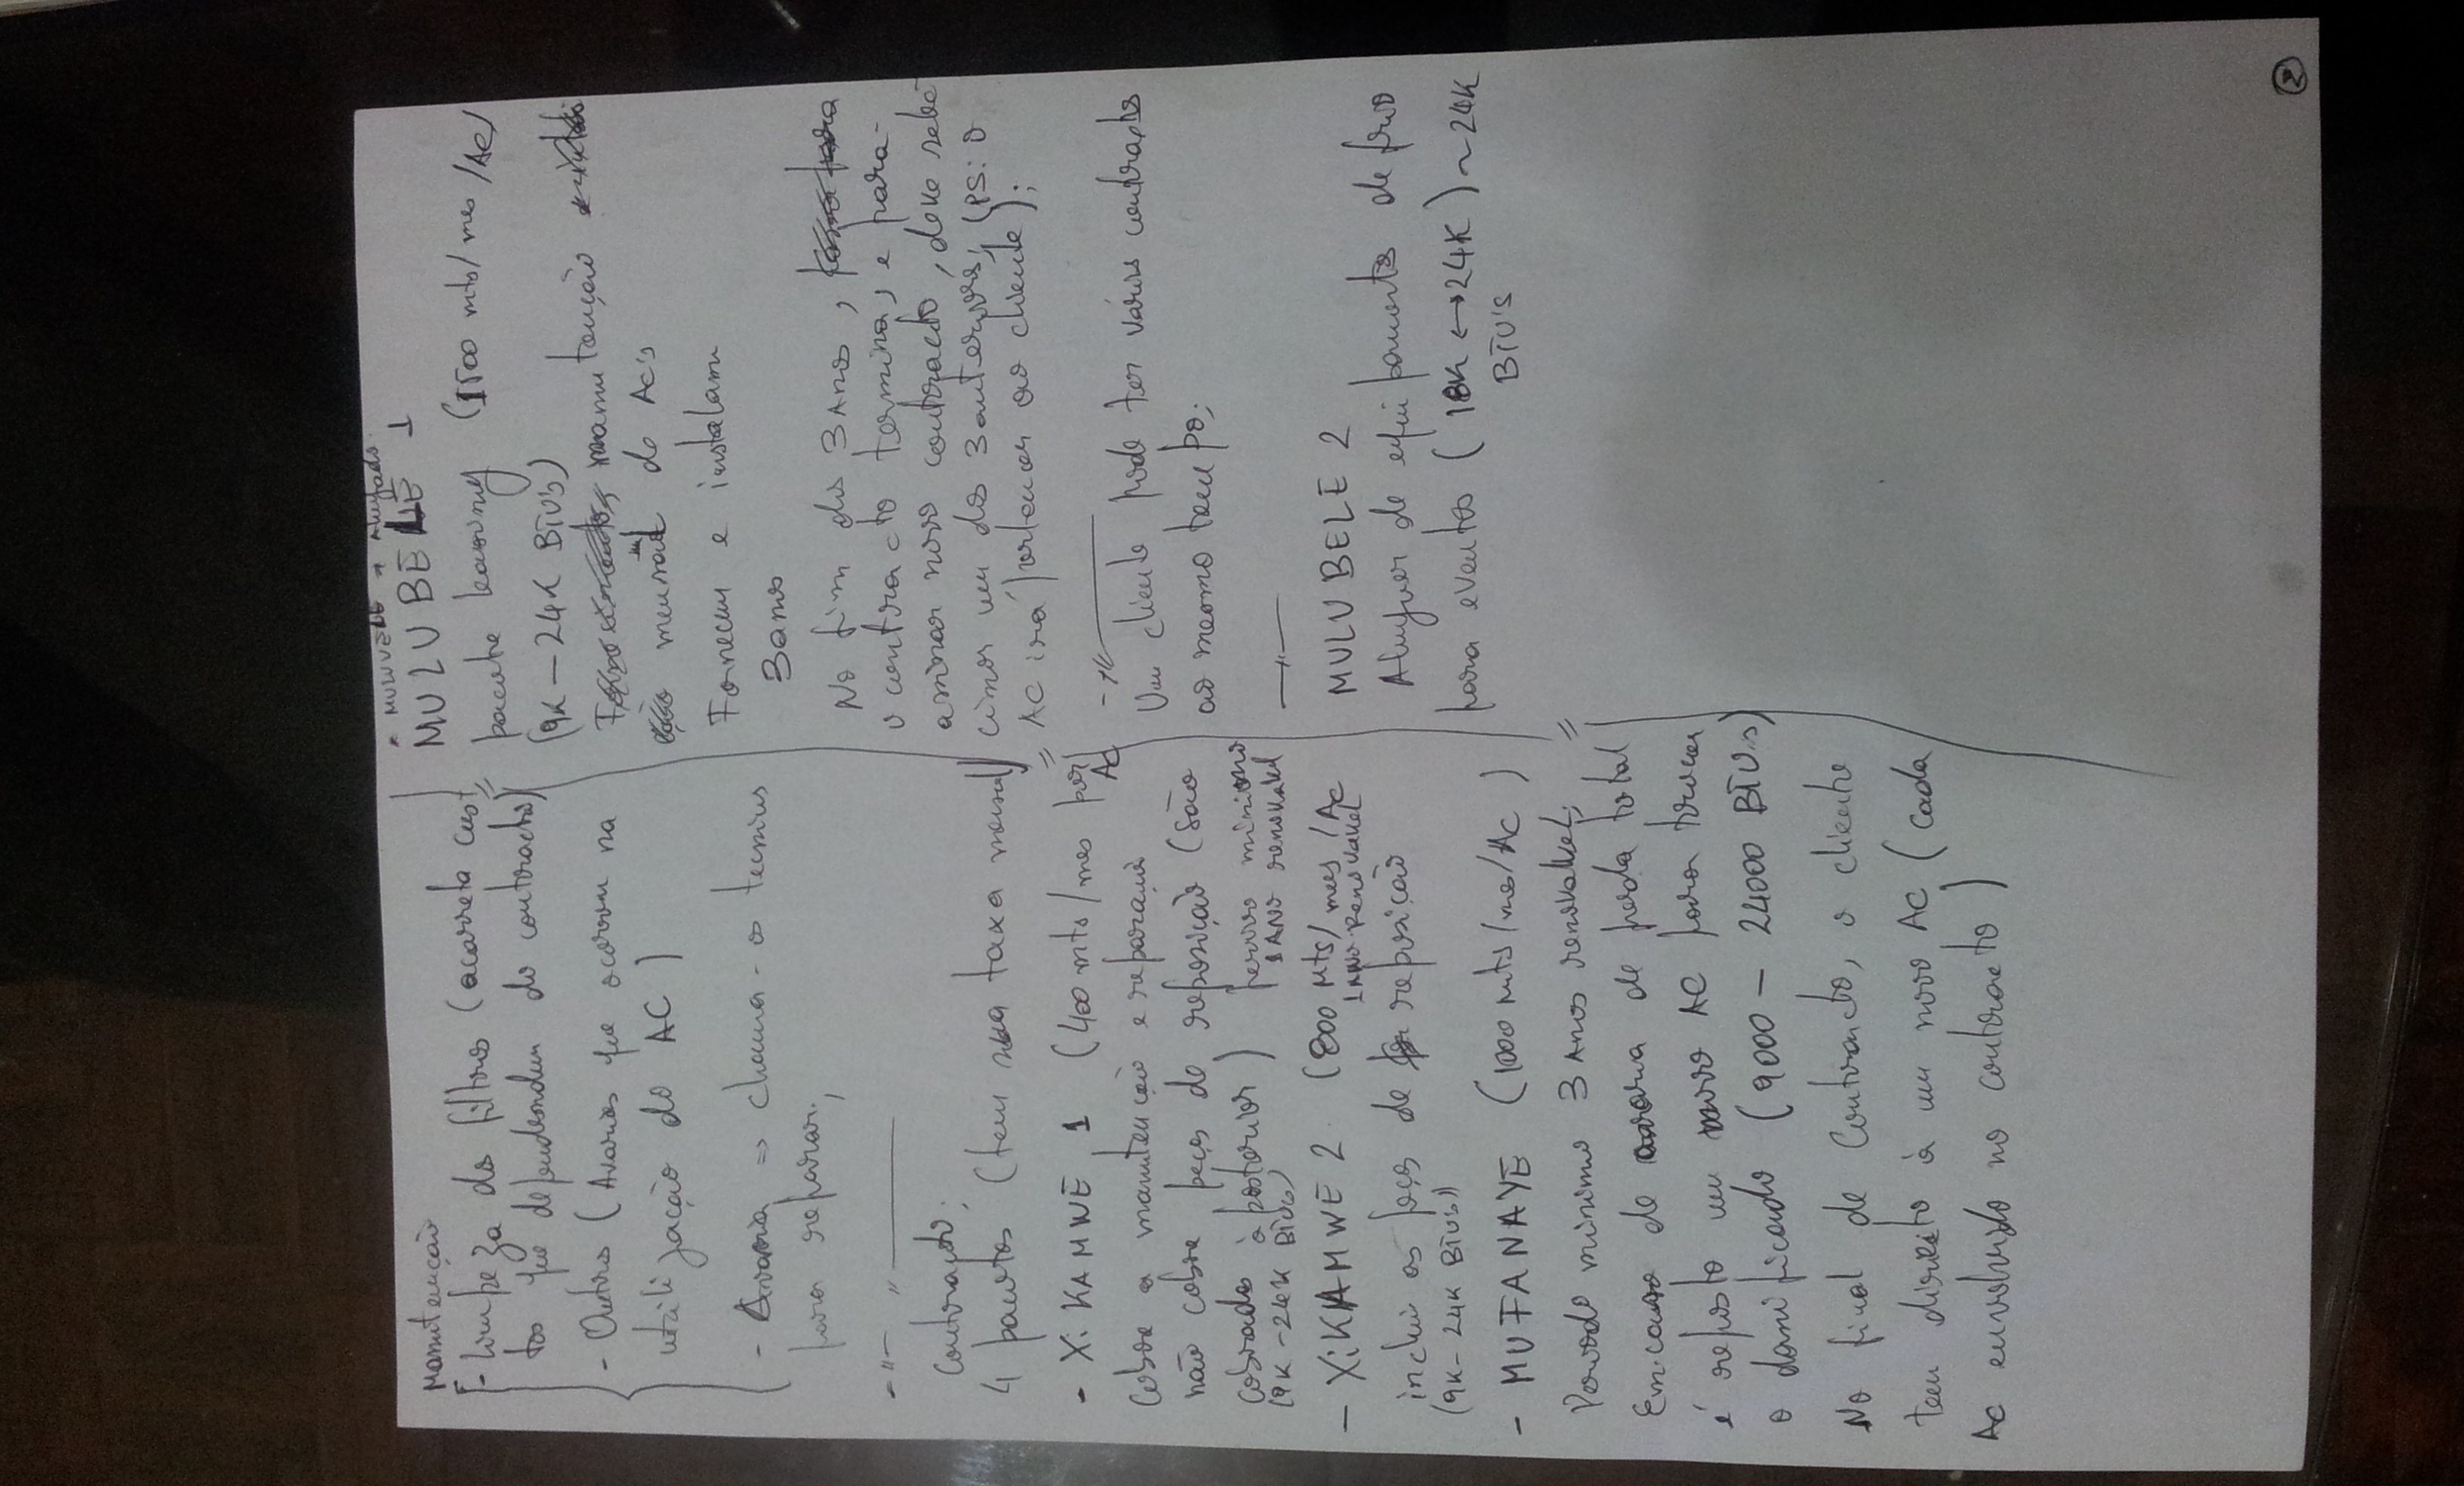 Manutenção
- limpeza dos filtros (acarreta cus
tos que dependendum do contracto)
- Outros (Avarias que ocorrem na
utilização do AC)
- Avaria => chama-os tecnicos
para reparar;
Contracto:
4 pacotes (tem sua taxa mensal)
- XiKAMWE 1 (400 mts/mes por
AC
Cobre a manutenção e reparação
não cobre peças de reposição (são
cobradas à posterior) periodo minimo
(9K - 24K BTU's) 1 ANO renovavel
- XiKAMWE 2 (800 Mts/mes/AC
1 ANO Renovavel
inclui as peças de reposição
(9K - 24K BTU's)
- MUFANAYE (1000 mts/mes/AC)
Periodo minimo 3 Anos renovavel;
Em caso de avaria de perda total
é reposto um novo AC para trocar
o danificado (9000 - 24000 BTU's)
No final de Contracto, o cliente
tem direito à um novo AC (cada
AC envolvido no contracto)
* MULUVELE → Alugado
MULUBELE 1
pacote leasing (1500 mts/mes/AC)
(9K - 24K BTU's)
manutenção
mensal de AC's
Fornecem e instalam
3 anos
No fim dos 3 Anos,
o contracto termina, e para
assinar novo contracto, deve
um dos 3 anteriores; (PS: o
AC irá pertencer ao cliente);
Um cliente pode ter vários contractos
ao mesmo tempo;
MULUBELE 2
Aluguer de equipamentos de frio
para eventos (18K ↔ 24K) ~ 24K
BTU's
2